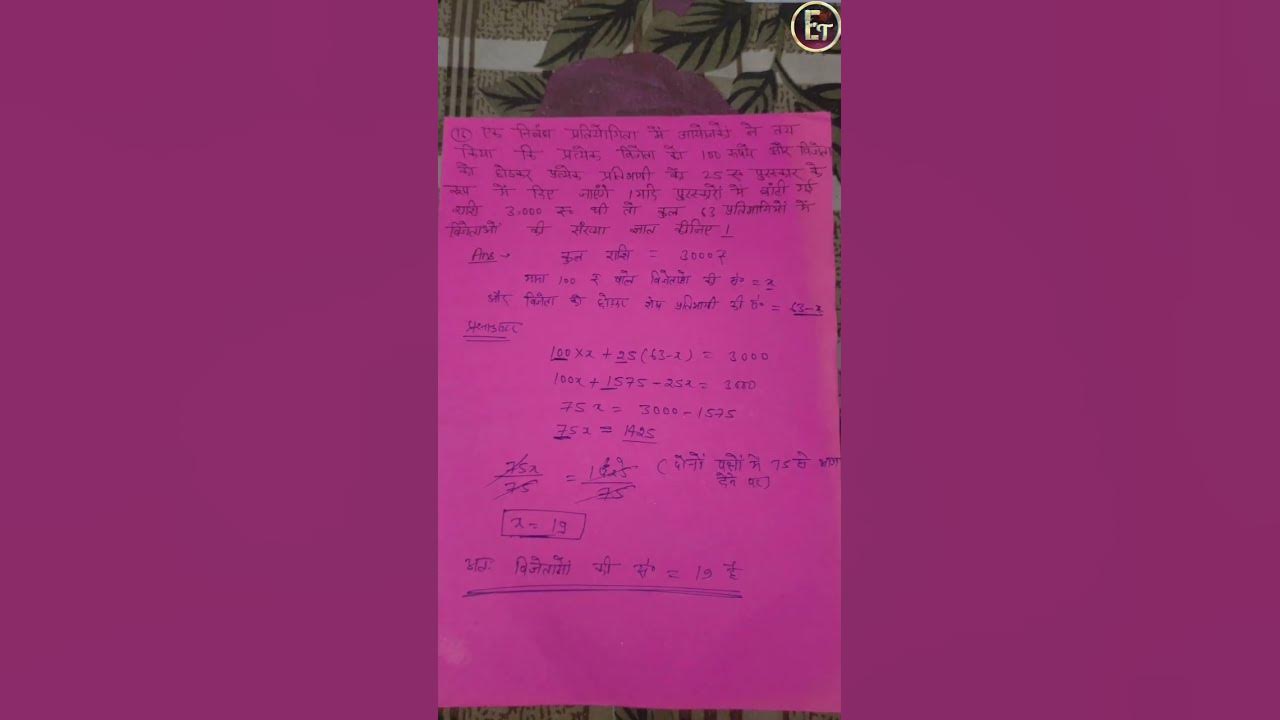 ET
(16) एक निबंध प्रतियोगिता में आयोजकों ने तय
किया कि प्रत्येक विजेता को 100 रूपये और विजेता
को छोडकर प्रत्येक प्रतिभागी को 25 रु० पुरस्कार के
रूप में दिए जाएँगे । यदि पुरस्कारों में बांटी गई
राशी 3,000 रु० थी तो कुल 63 प्रतिभागियों में
विजेताओं की संख्या ज्ञात कीजिए ।
Ans → कुल राशि = 3000 रु
माना 100 रु वाले विजेताओं की सं० = x
और विजेता को छोड़कर शेष प्रतिभागी की सं० = 63-x
प्रश्नानुसार
100×x + 25(63-x) = 3000
100x + 1575 - 25x = 3000
75x = 3000 - 1575
75x = 1425
75x/75 = 1425/75 (दोनों पक्षों में 75 से भाग
देने पर)
x = 19
अतः विजेताओं की सं० = 19 है